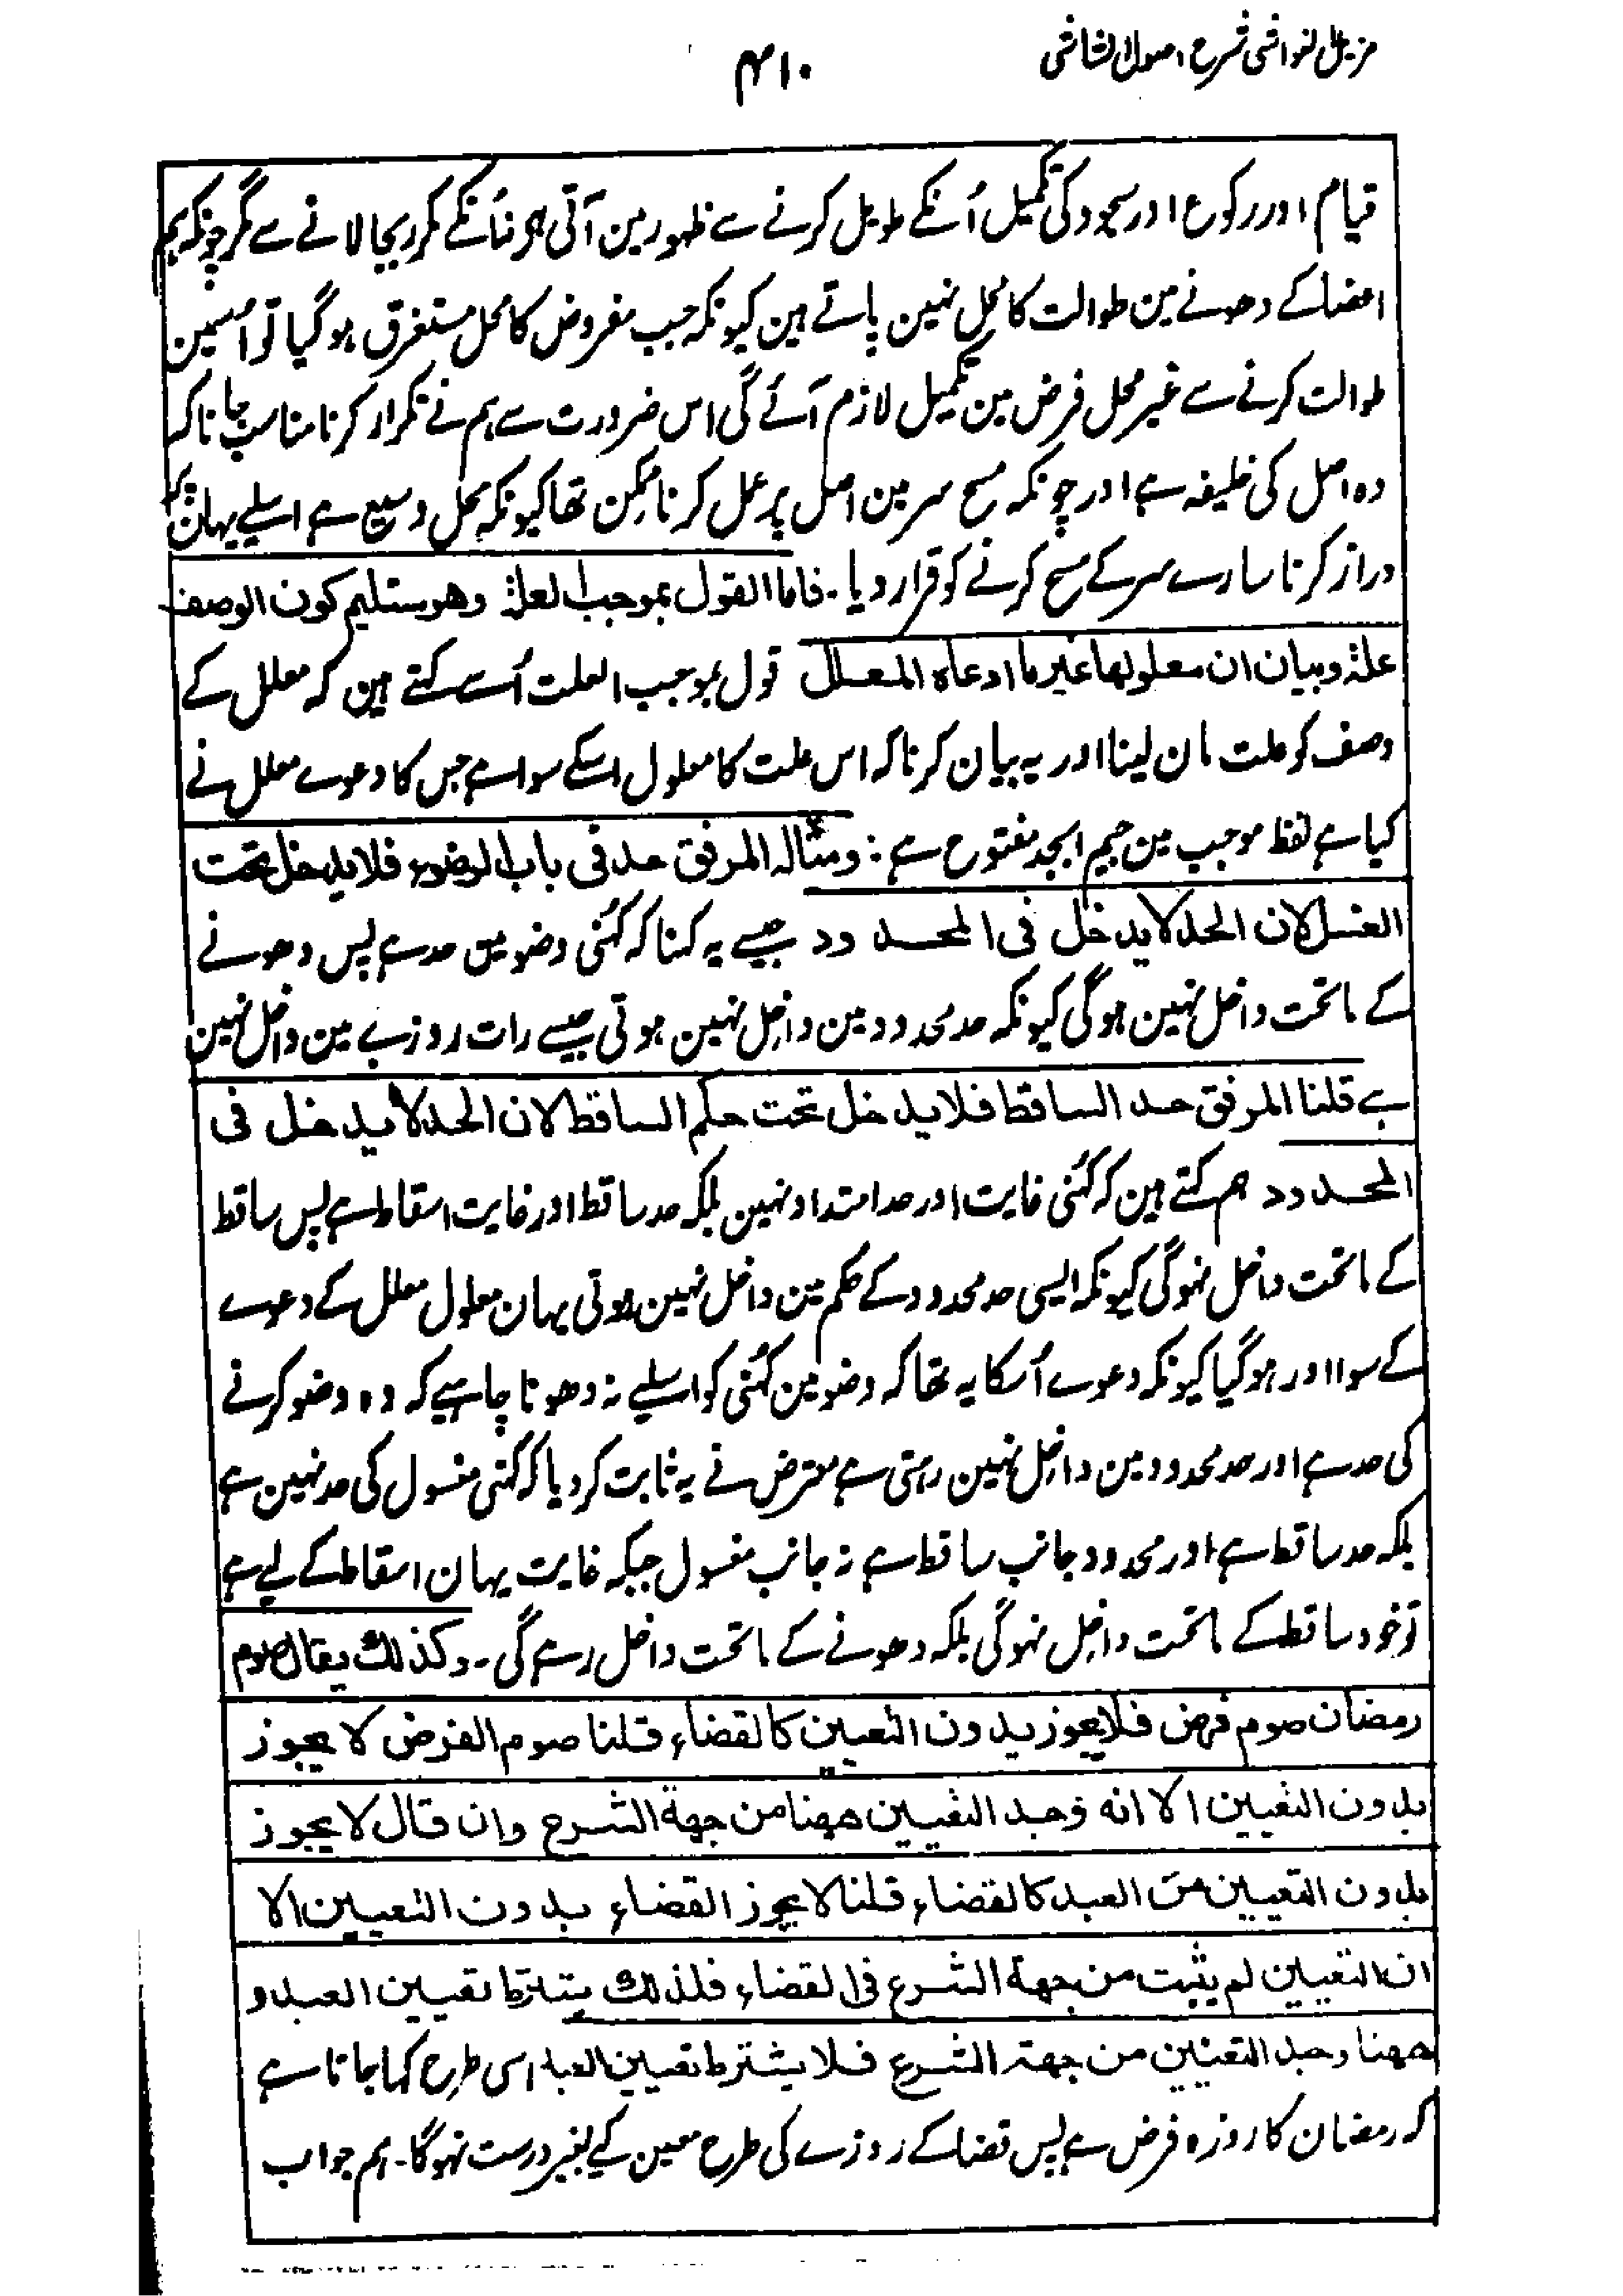 مزیل الغواشی شرح اصول الشاشی
۴۱۰
قیام اور رکوع اور سجود کی تکمیل اُنکے طویل کرنے سے ظہور مین آتی ہو نہ اُنکے مکرر بجا لانے سے مگر چونکہ ہم
اعضا کے دھونے مین طوالت کا محل نہین پاتے ہین کیونکہ جب مفروض کا محل مستغرق ہو گیا تو اُسمین
طوالت کرنے سے غیر محل فرض مین تکمیل لازم آئے گی اس ضرورت سے ہم نے تکرار کرنا مناسب جانا کہ
وہ اصل کی خلیفہ ہے اور چونکہ مسح سر مین اصل پر عمل کرنا ممکن تھا کیونکہ محل وسیع ہے اسلیے یہان پر
دراز کرنا سارے سر کے مسح کرنے کو قرار دیا۔ فاما القول بموجب العلة وهو تسليم كون الوصف
علة وبيان ان معلولها غير ما ادعاه المعلل قول بموجب العلت اُسے کہتے ہین کہ معلل کے
وصف کو علت مان لینا اور یہ بیان کرنا کہ اس علت کا معلول اسکے سوا ہے جس کا دعوے معلل نے
کیا ہے لفظ موجب مین جیم ابجد مفتوح ہے : ومثاله المرفق حد فى باب الوضوء فلا يدخل تحت
الغسل لان الحد لا يدخل فى المحدود جیسے یہ کہنا کہ کُہنی وضو مین حد ہے پس دھونے
کے ماتحت داخل نہین ہوگی کیونکہ حد محدود مین داخل نہین ہوتی جیسے رات روزے مین داخل نہین
ہے قلنا المرفق حد الساقط فلا يدخل تحت حكم الساقط لان الحد لا يدخل فى
المحدود ہم کہتے ہین کہ کُہنی غایت اور حد امتداد نہین بلکہ حد ساقط اور غایت اسقاط ہے پس ساقط
کے ماتحت داخل نہوگی کیونکہ ایسی حد محدود کے حکم مین داخل نہین ہوتی یہان معلول معلل کے دعوے
کے سوا اور ہو گیا کیونکہ دعوے اُسکا یہ تھا کہ وضو مین کُہنی کو اسلیے نہ دھونا چاہیے کہ وہ وضو کرنے
کی حد ہے اور حد محدود مین داخل نہین رہتی ہے معترض نے یہ ثابت کر دیا کہ کُہنی مغسول کی حد نہین ہے
بلکہ حد ساقط ہے اور محدود جانب ساقط ہے نہ جانب مغسول جبکہ غایت یہان اسقاط کے لیے ہے
تو خود ساقط کے ماتحت داخل نہوگی بلکہ دھونے کے ماتحت داخل رہے گی۔ وكذلك يقال صوم
رمضان صوم فرض فلا يجوز بدون التعيين كالقضاء قلنا صوم الفرض لا يجوز
بدون التعيين الا انه وجد التعيين ههنا من جهة الشرع وان قال لا يجوز
بدون التعيين من العبد كالقضاء قلنا لا يجوز القضاء بدون التعيين الا
ان التعيين لم يثبت من جهة الشرع فى القضاء فلذلك يشترط تعيين العبد و
ههنا وجد التعيين من جهة الشرع فلا يشترط تعيين العبد اسی طرح کہا جاتا ہے
کہ رمضان کا روزہ فرض ہے پس قضا کے روزے کی طرح معین کیے بغیر درست نہوگا۔ ہم جواب